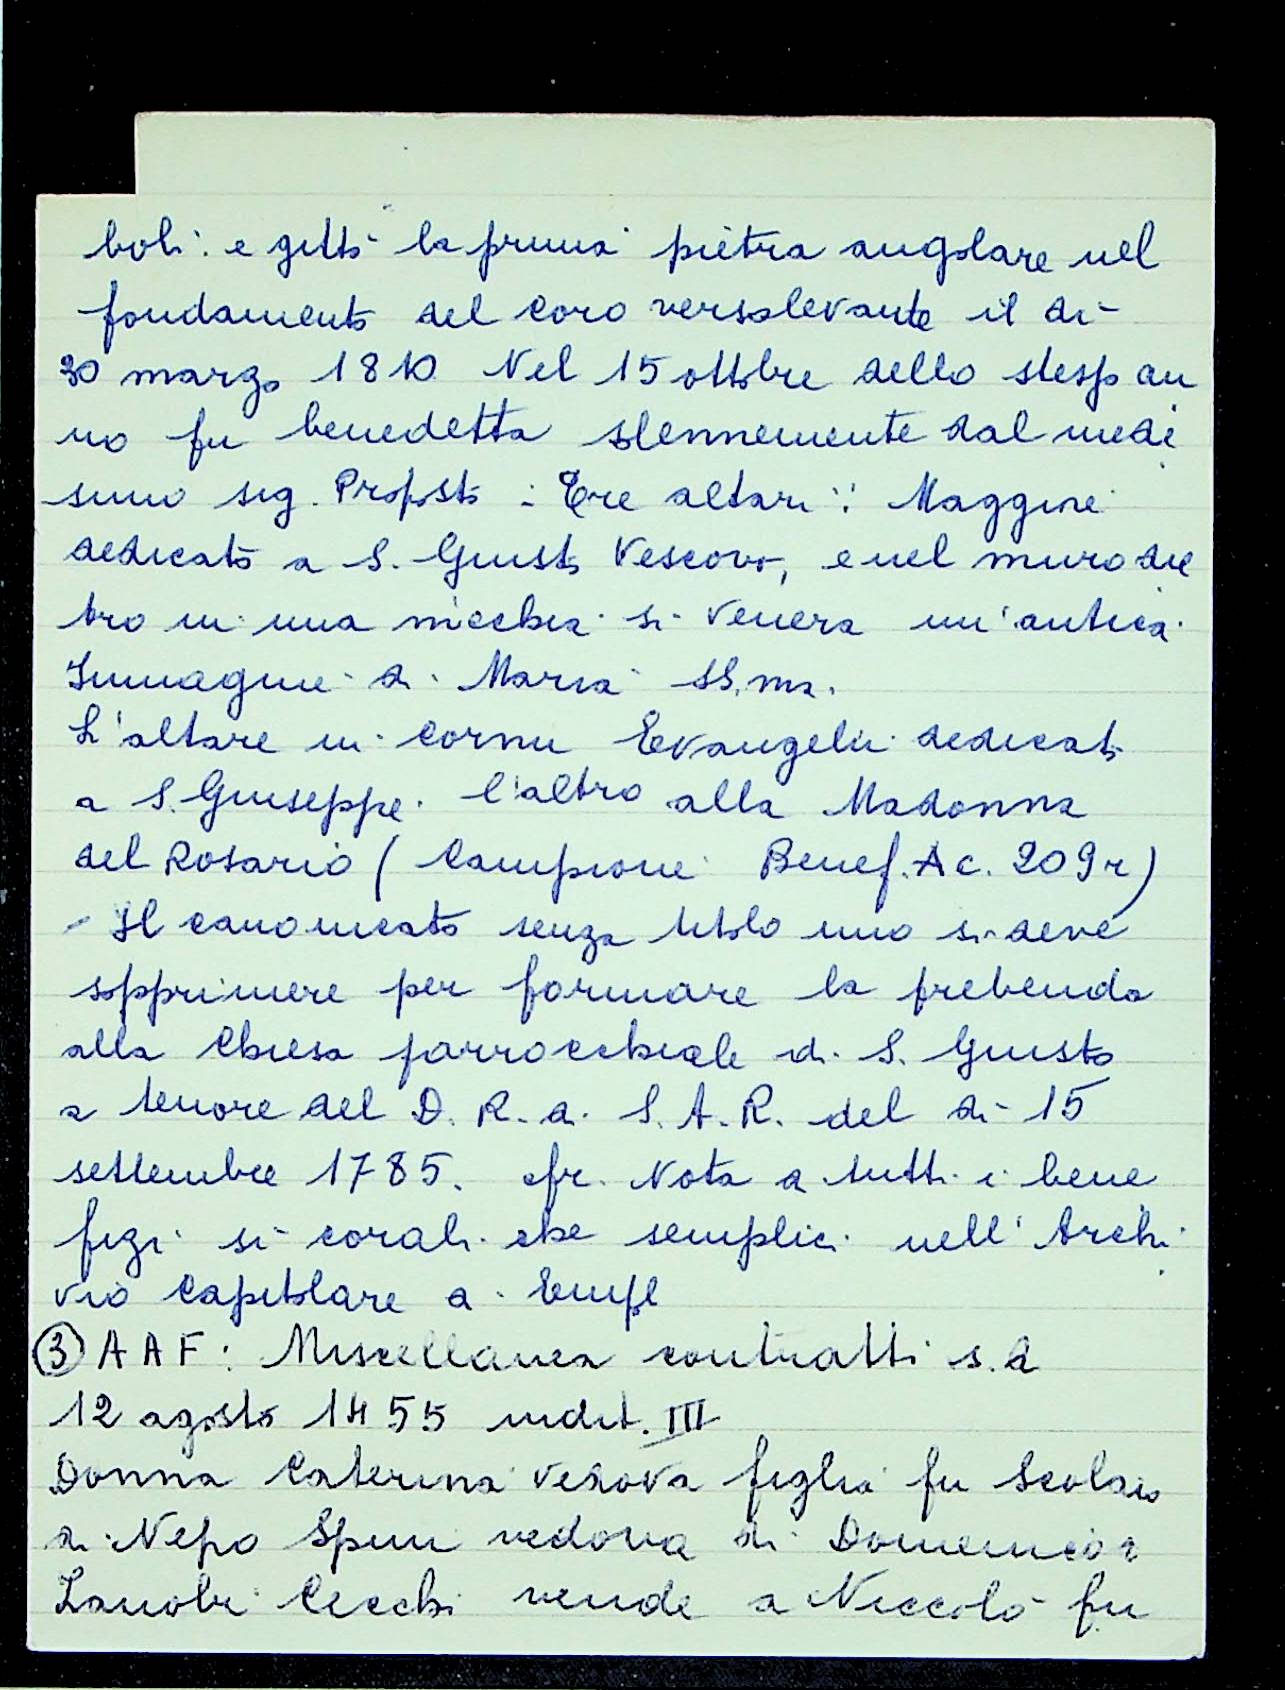 boli: e gettò la prima pietra angolare nel
fondamento del coro verso levante il dì
30 marzo 1810 Nel 15 ottobre dello stesso an
no fu benedetta solennemente dal mede
simo sig. Proposto : Tre altari : Maggiore
dedicato a S. Giusto Vescovo, e nel muro die
tro in una nicchia si venera un'antica
Immagine di Maria SS.ma.
L'altare in cornu Evangelii dedicato
a S. Giuseppe. l'altro alla Madonna
del Rosario ( Campione Benef. A c. 209r)
- Il canonicato senza titolo uno si deve
sopprimere per formare la prebenda
alla Chiesa parrocchiale di S. Giusto
a tenore del D. R. di S. A. R. del dì 15
settembre 1785. cfr. Nota a tutti i bene
fizi sì corali che semplici nell'Archi
vio Capitolare a Empl
③ A A F : Miscellanea contratti s. d
12 agosto 1455 indit. III
Donna Caterina vedova figlia fu Scolaio
di Nepo Spini vedova di Domenico di
Zanobi Cecchi vende a Niccolò fu